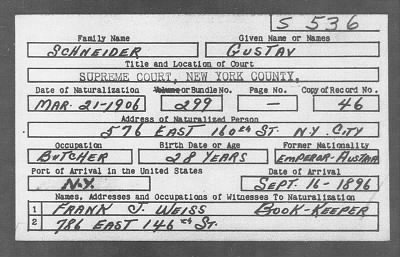 S 536
Family Name Given Name or Names
SCHNEIDER GUSTAV
Title and Location of Court
SUPREME COURT, NEW YORK COUNTY,
Date of Naturalization Volume or Bundle No. Page No. Copy of Record No.
MAR. 21-1906 299 — 46
Address of Naturalized Person
576 EAST 160TH ST. N.Y. CITY
Occupation Birth Date or Age Former Nationality
BUTCHER 28 YEARS EMPEROR-AUSTRIA
Port of Arrival in the United States Date of Arrival
N.Y. SEPT. 16-1896
Names, Addresses and Occupations of Witnesses To Naturalization
1 FRANK J. WEISS BOOK-KEEPER
2 786 EAST 146TH ST.